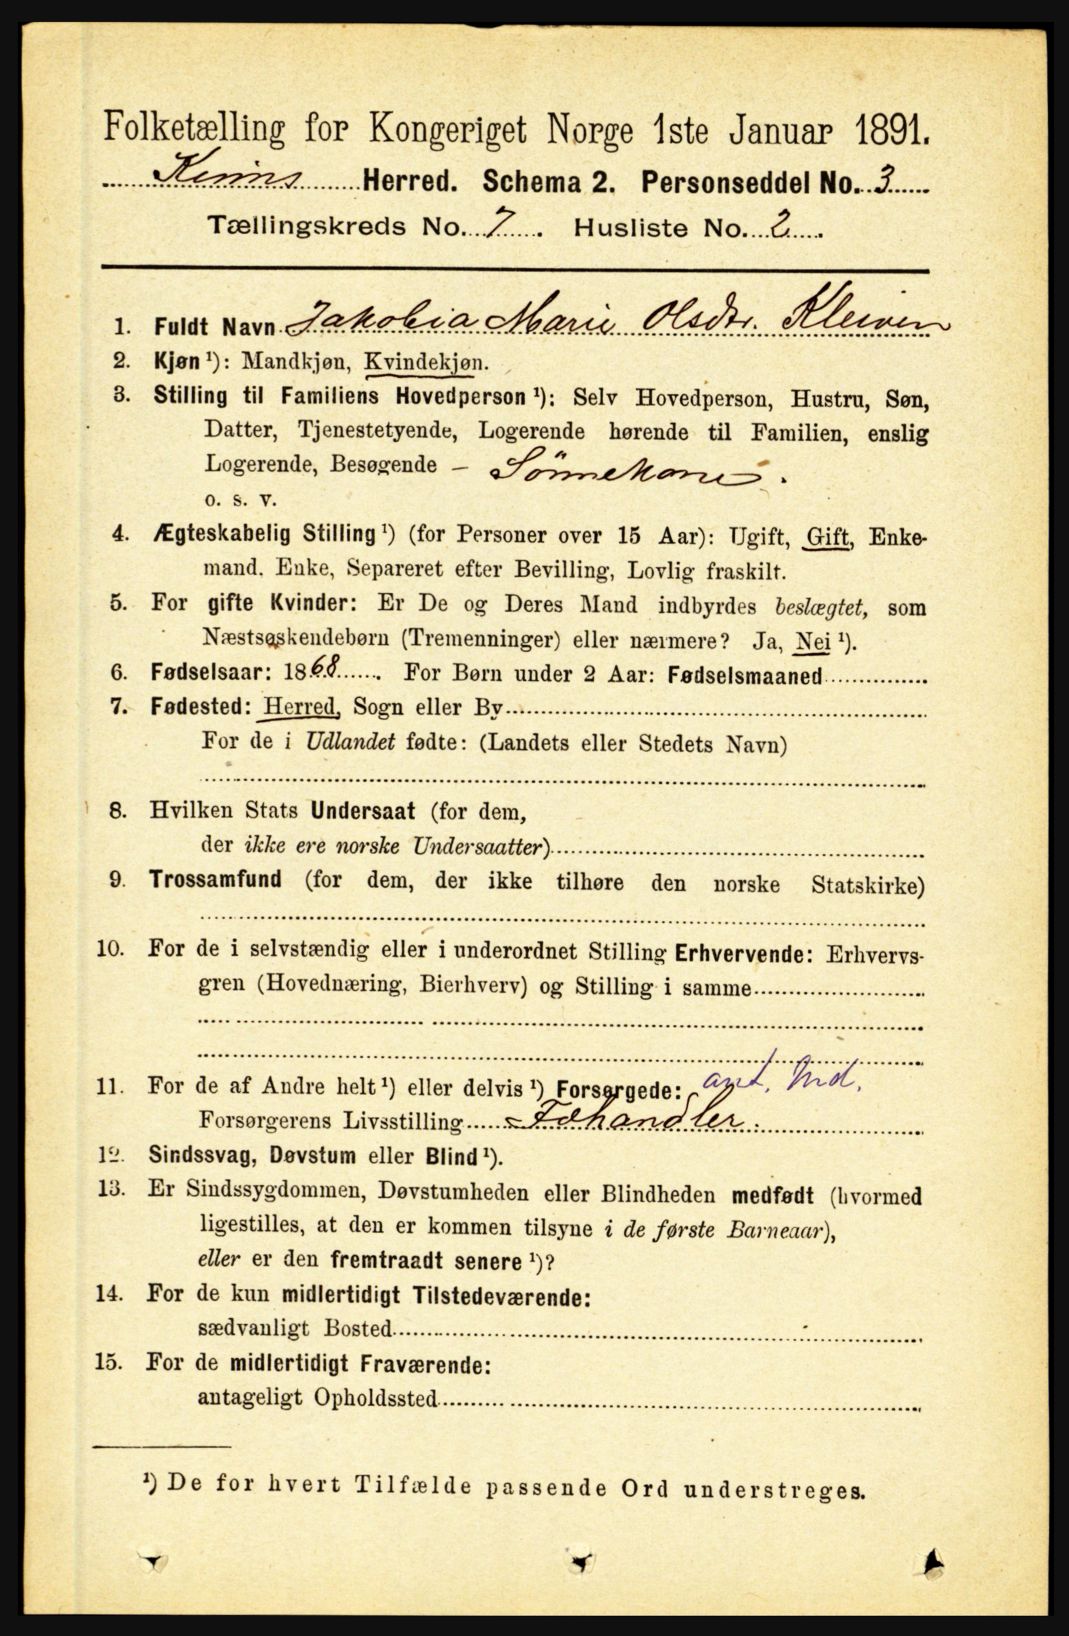 Folketælling for Kongeriget Norge 1ste Januar 1891.
Kinns Herred. Schema 2. Personseddel No. 3
Tællingskreds No. 7. Husliste No. 2.
1. Fuldt Navn Jakobia Marie Olsdtr. Kleiven
2. Kjøn ¹): Mandkjøn, Kvindekjøn.
3. Stilling til Familiens Hovedperson ¹): Selv Hovedperson, Hustru, Søn,
Datter, Tjenestetyende, Logerende hørende til Familien, enslig
Logerende, Besøgende – Sönnekone.
o. s. v.
4. Ægteskabelig Stilling ¹) (for Personer over 15 Aar): Ugift, Gift, Enke-
mand, Enke, Separeret efter Bevilling, Lovlig fraskilt.
5. For gifte Kvinder: Er De og Deres Mand indbyrdes beslægtet, som
Næstsøskendebørn (Tremenninger) eller nærmere? Ja, Nei ¹).
6. Fødselsaar: 1868. For Børn under 2 Aar: Fødselsmaaned
7. Fødested: Herred, Sogn eller By
For de i Udlandet fødte: (Landets eller Stedets Navn)
8. Hvilken Stats Undersaat (for dem,
der ikke ere norske Undersaatter)
9. Trossamfund (for dem, der ikke tilhøre den norske Statskirke)
10. For de i selvstændig eller i underordnet Stilling Erhvervende: Erhvervs-
gren (Hovednæring, Bierhverv) og Stilling i samme
11. For de af Andre helt ¹) eller delvis ¹) Forsørgede: ant. Ind.
Forsørgerens Livsstilling Fæhandler.
12. Sindssvag, Døvstum eller Blind ¹).
13. Er Sindssygdommen, Døvstumheden eller Blindheden medfødt (hvormed
ligestilles, at den er kommen tilsyne i de første Barneaar),
eller er den fremtraadt senere ¹)?
14. For de kun midlertidigt Tilstedeværende:
sædvanligt Bosted
15. For de midlertidigt Fraværende:
antageligt Opholdssted
¹) De for hvert Tilfælde passende Ord understreges.